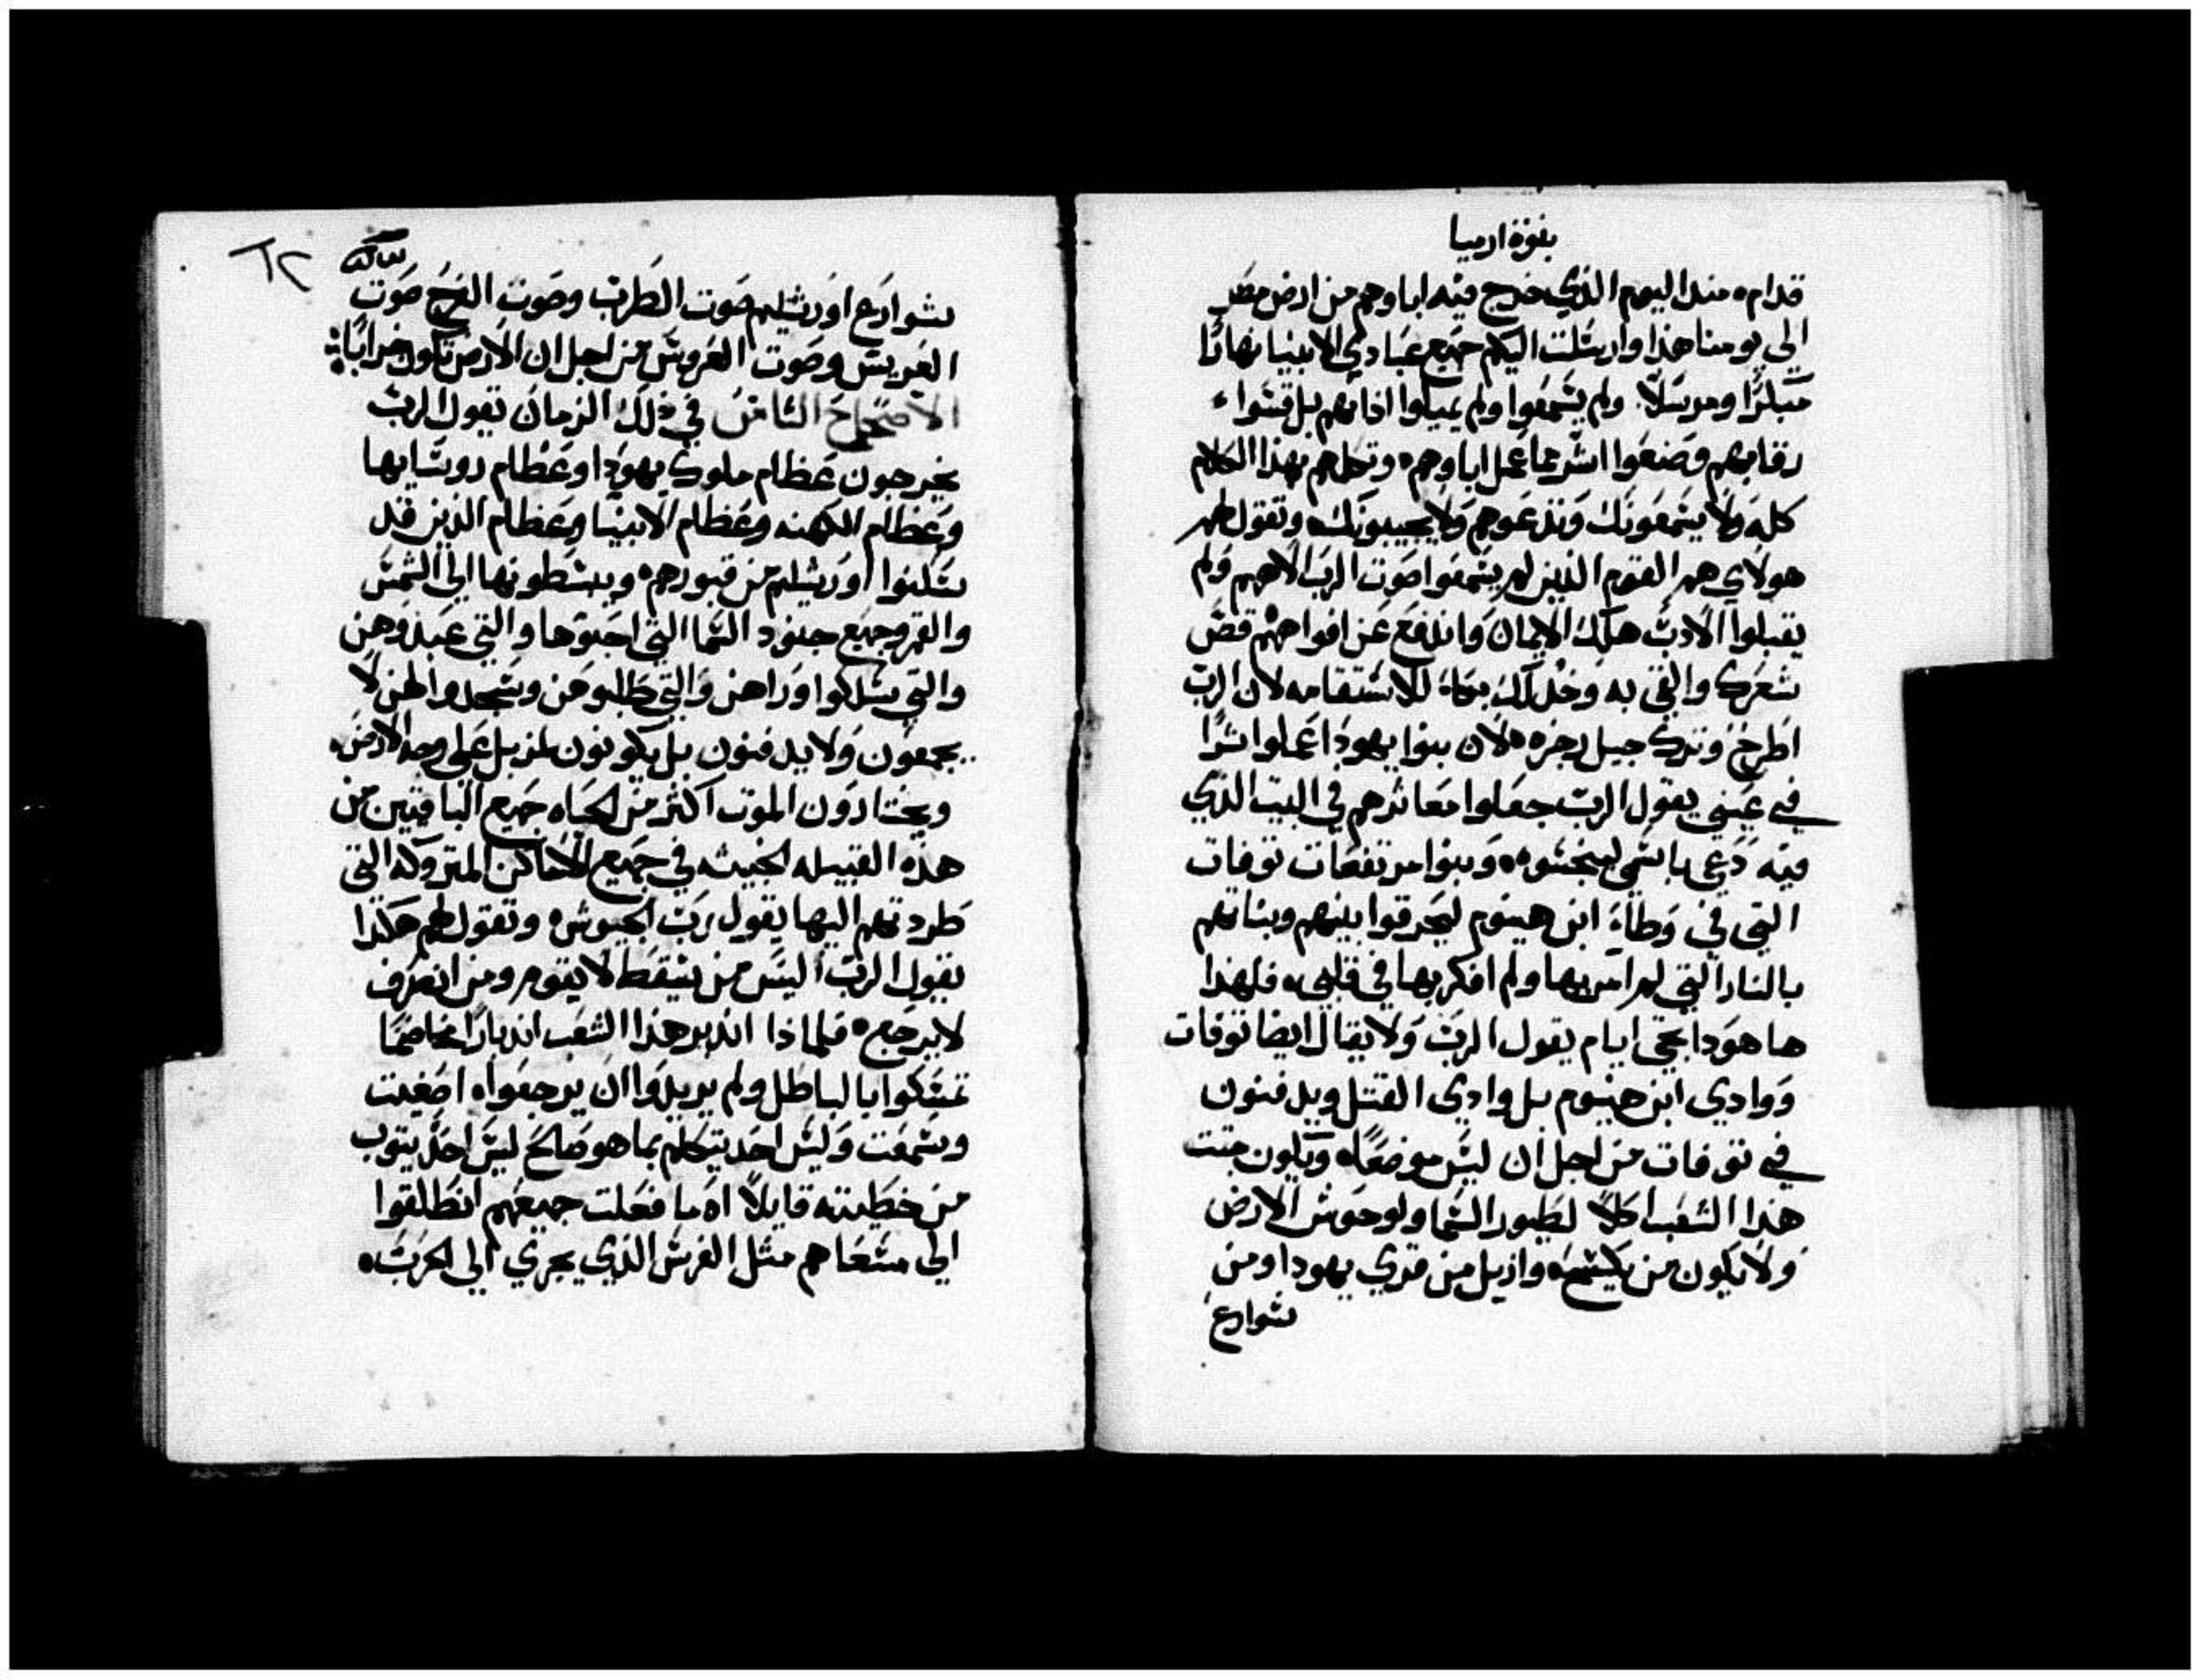 بنوة ارميا
قدام منذ اليوم الذي خرج فيه اباوهم من ارض مصر
الي يومنا هذا وارسلت اليكم جميع عبادي الانبيا نهارًا
مبكرًا ومرسلًا ولم يسمعوا ولم يميلوا اذانهم بل قسوا
رقابهم وصنعوا اشر مما عمل اباوهم وتكلمهم بهذا الكلام
كله ولا يسمعونك وتدعوهم ولا يجيبونك وتقول لهم
هولاي هم القوم الذين لم يسمعوا صوت الرب الاههم ولم
يقبلوا الادب هلك الايمان واندفع عن افواههم قص
شعرك والقي به وخذ لك بكاء للاستقامه لان الرب
اطرح وترك جيل رجزه لان بنوا يهودا عملوا شرًا
في عيني يقول الرب جعلوا معاثرهم في البيت الذي
فيه دعي باسمي لينجسوه وبنوا مرتفعات توفات
التي في وطاة ابن هينوم ليحرقوا بنيهم وبناتهم
بالنار التي لم امر بها ولم افكر بها في قلبي فلهذا
ها هوذا تجي ايام يقول الرب ولا يقال ايضا توفات
ووادي ابن هينوم بل وادي القتل ويدفنون
في توفات من اجل ان ليس موضعًا وتكون جتت
هذا الشعب اكلًا لطيور السما ولوحوش الارض
ولا يكون من يكشحه وازيل من قري يهودا ومن
شوارع
٦٢
شوارع اورشليم صوت الطرب وصوت الفرح صوت
العريس وصوت العروس من اجل ان الارض تكون خرابًا
الاصحاح الثامن في ذلك الزمان تقول الرب
يخرجون عظام ملوك يهودا وعظام روسايها
وعظام الكهنه وعظام الانبيا وعظام الذين قد
سكنوا اورشليم من قبورهم ويبسطونها الي الشمس
والقمر وجميع جنود السما التي احبوها والتي عبدوهن
والتي سلكوا وراهن والتي طلبوهن وسجدوا لهن لا
يجمعون ولا يدفنون بل يكونون لمزبل علي وجه الارض
ويختارون الموت اكثر من الحياه جميع الباقيين من
هذه القبيله الخبيثه في جميع الاماكن المتروكه التي
طردتهم اليها يقول رب الجيوش وتقول لهم هكذا
يقول الرب اليس من يسقط لا يقوم ومن انصرف
لا يرجع فلماذا اندبر هذا الشعب اندبارًا مخاصمًا
تمسكوا بالباطل ولم يريدوا ان يرجعوا اصغيت
وسمعت وليس احد يتكلم بما هو صالح ليس احد يتوب
من خطيته قايلًا اه ما فعلت جميعهم انطلقوا
الي مسعاهم مثل الفرس الذي يجري الي الحرب